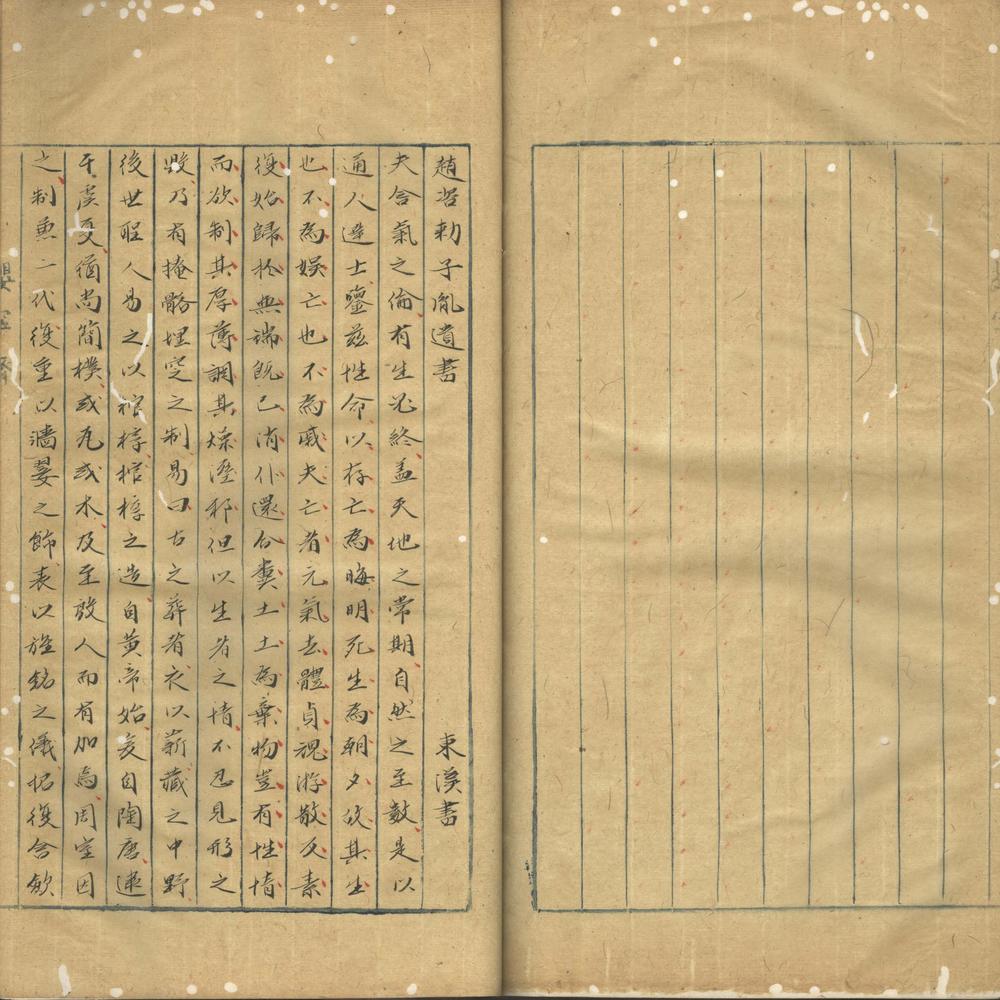 趙咨勅子胤遺書 東溪書
夫含氣之倫有生必終盖天地之常期自然之至數是以
通人達士鑒茲性命以存亡為晦明死生為朝夕故其生
也不為娛亡也不為戚夫亡者元氣去體貞魂游散反素
復始歸於無端既已消仆還合糞土土為棄物豈有性情
而欲制其厚薄調其燥溼邪但以生者之情不忍見形之
毀乃有掩骼埋穸之制易曰古之葬者衣以薪藏之中野
後世聖人易之以棺槨棺槨之造自黃帝始爰自陶唐逮
于虞夏猶尚簡樸或瓦或木及至殷人而有加焉周室因
之制兼二代復重以牆翣之飾表以旌銘之儀招復含斂